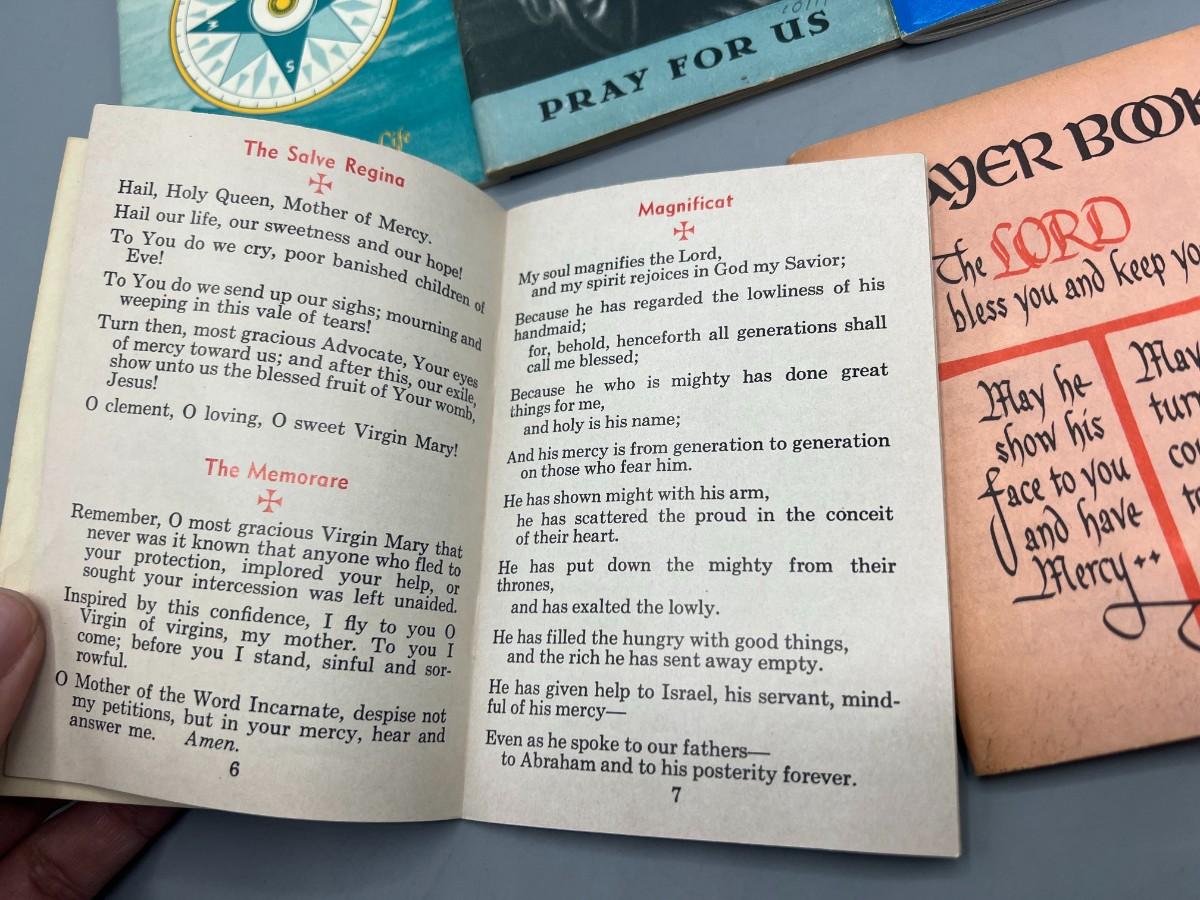 S
Life
com
PRAY FOR US
The Salve Regina
Hail, Holy Queen, Mother of Mercy.
Hail our life, our sweetness and our hope!
To You do we cry, poor banished children of
Eve!
To You do we send up our sighs; mourning and
weeping in this vale of tears!
Turn then, most gracious Advocate, Your eyes
of mercy toward us; and after this, our exile,
show unto us the blessed fruit of Your womb,
Jesus!
O clement, O loving, O sweet Virgin Mary!
The Memorare
Remember, O most gracious Virgin Mary that
never was it known that anyone who fled to
your protection, implored your help, or
sought your intercession was left unaided.
Inspired by this confidence, I fly to you O
Virgin of virgins, my mother. To you I
come; before you I stand, sinful and sor-
rowful.
O Mother of the Word Incarnate, despise not
my petitions, but in your mercy, hear and
answer me. Amen.
6
Magnificat
My soul magnifies the Lord,
and my spirit rejoices in God my Savior;
Because he has regarded the lowliness of his
handmaid;
for, behold, henceforth all generations shall
call me blessed;
Because he who is mighty has done great
things for me,
and holy is his name;
And his mercy is from generation to generation
on those who fear him.
He has shown might with his arm,
he has scattered the proud in the conceit
of their heart.
He has put down the mighty from their
thrones,
and has exalted the lowly.
He has filled the hungry with good things,
and the rich he has sent away empty.
He has given help to Israel, his servant, mind-
ful of his mercy—
Even as he spoke to our fathers—
to Abraham and to his posterity forever.
7
AYER BOOK
The LORD
bless you and keep yo
May he
show his
face to you
and have
Mercy++
May
turn
co